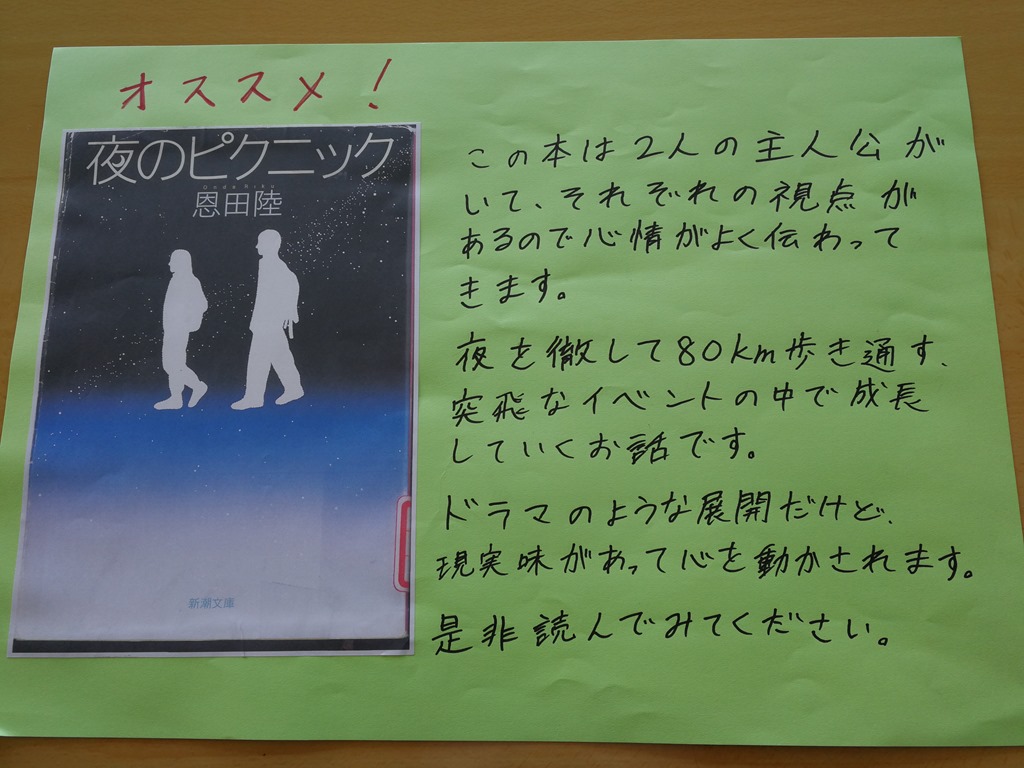 オススメ！
夜のピクニック
Onda Riku
恩田陸
新潮文庫
この本は2人の主人公が
いて、それぞれの視点が
あるので心情がよく伝わって
きます。
夜を徹して80km歩き通す、
突飛なイベントの中で成長
していくお話です。
ドラマのような展開だけど、
現実味があって心を動かされます。
是非読んでみてください。